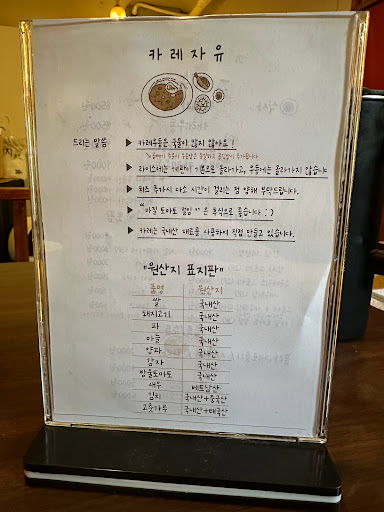 카레자유
드리는 말씀
▶ 카레우동은 국물이 많지 않아요!
▶ 라이스에는 계란이 기본으로 올라가고, 우동에는 올라가지 않습니다
▶ 치즈 추가시 다소 시간이 걸리는 점 양해 부탁드립니다.
▶ "바질 토마토 절임"은 후식으로 좋습니다 : )
▶ 카레는 국내산 재료를 사용하여 직접 만들고 있습니다.
"원산지 표지판"
품명 원산지
쌀 국내산
돼지고기 국내산
파 국내산
마늘 국내산
양파 국내산
감자 국내산
방울토마토 국내산
새우 베트남산
김치 국내산+중국산
고춧가루 국내산+태국산